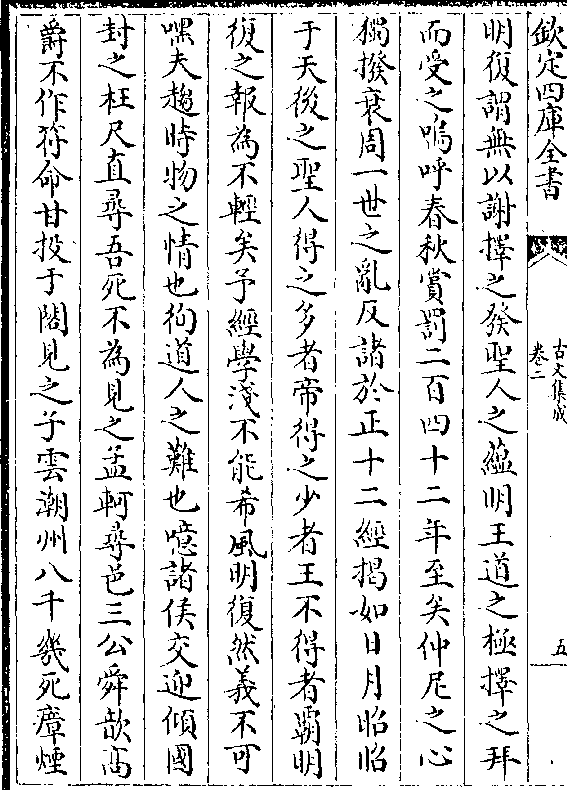 欽定四庫全書
古文集成
卷二
五
明復謂無以謝擇之發聖人之蘊明王道之極擇之拜
而受之嗚呼春秋賞罰二百四十二年至矣仲尼之心
獨撥衰周一世之亂反諸於正十二經揭如日月昭昭
于天後之聖人得之多者帝得之少者王不得者霸明
復之報為不輕矣予經學淺不能希風明復然義不可
嘿夫趨時物之情也徇道人之難也噫諸侯交迎傾國
封之枉尺直尋吾死不為見之孟軻尋邑三公舜歆高
爵不作符命甘投于閣見之子雲潮州八千幾死瘴煙